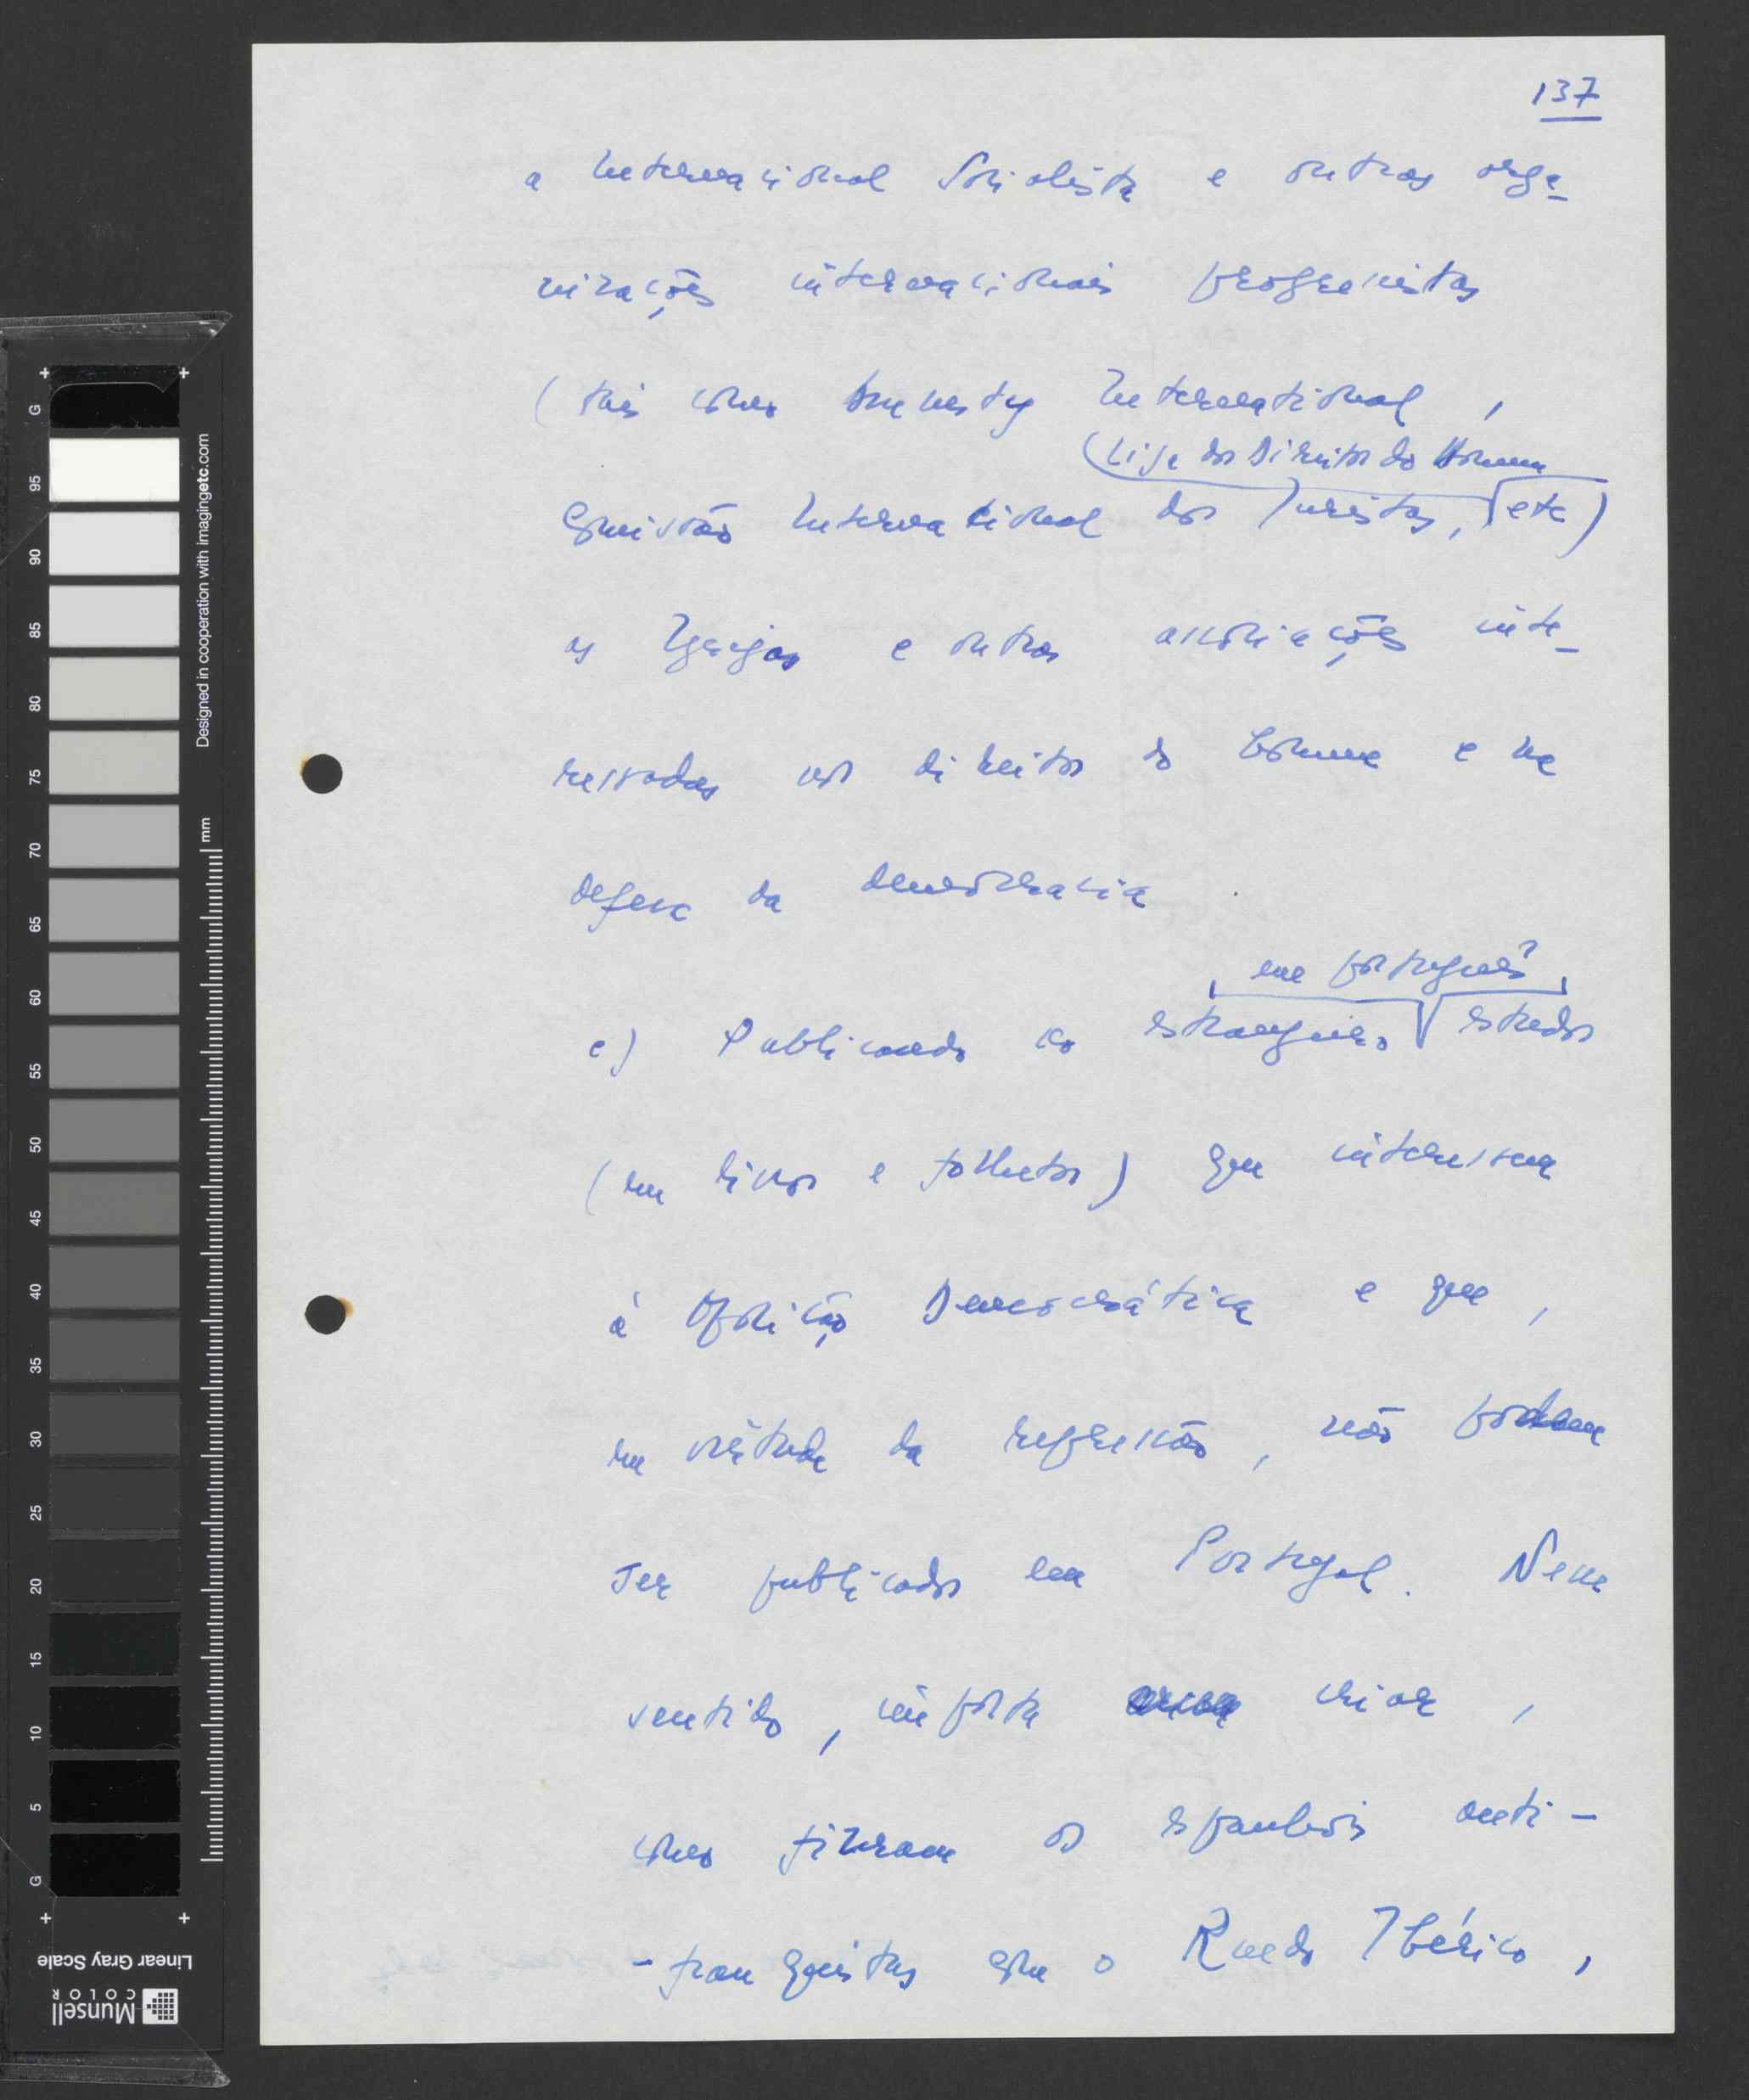 137
a Internacional Socialista e outras orga-
nizações internacionais progressistas
(tais como Amnesty International,
Liga dos Direitos do Homem
Comissão Internacional dos Juristas, etc)
as Igrejas e outras associações inte-
ressadas nos direitos do homem e na
defesa da democracia
em português
c) Publicando no estrangeiro estudos
(em livros e folhetos) que interessem
à Oposição Democrática e que,
em virtude da repressão, não podem
ser publicados em Portugal. Nesse
sentido, importa criar,
como fizeram os espanhóis anti-
-franquistas com o Ruedo Ibérico,
G
95
90
85
80
75
70
65
60
55
50
45
40
35
30
25
20
15
10
5
G
mm
Designed in cooperation with imagingetc.com
Linear Gray Scale
Munsell
COLOR